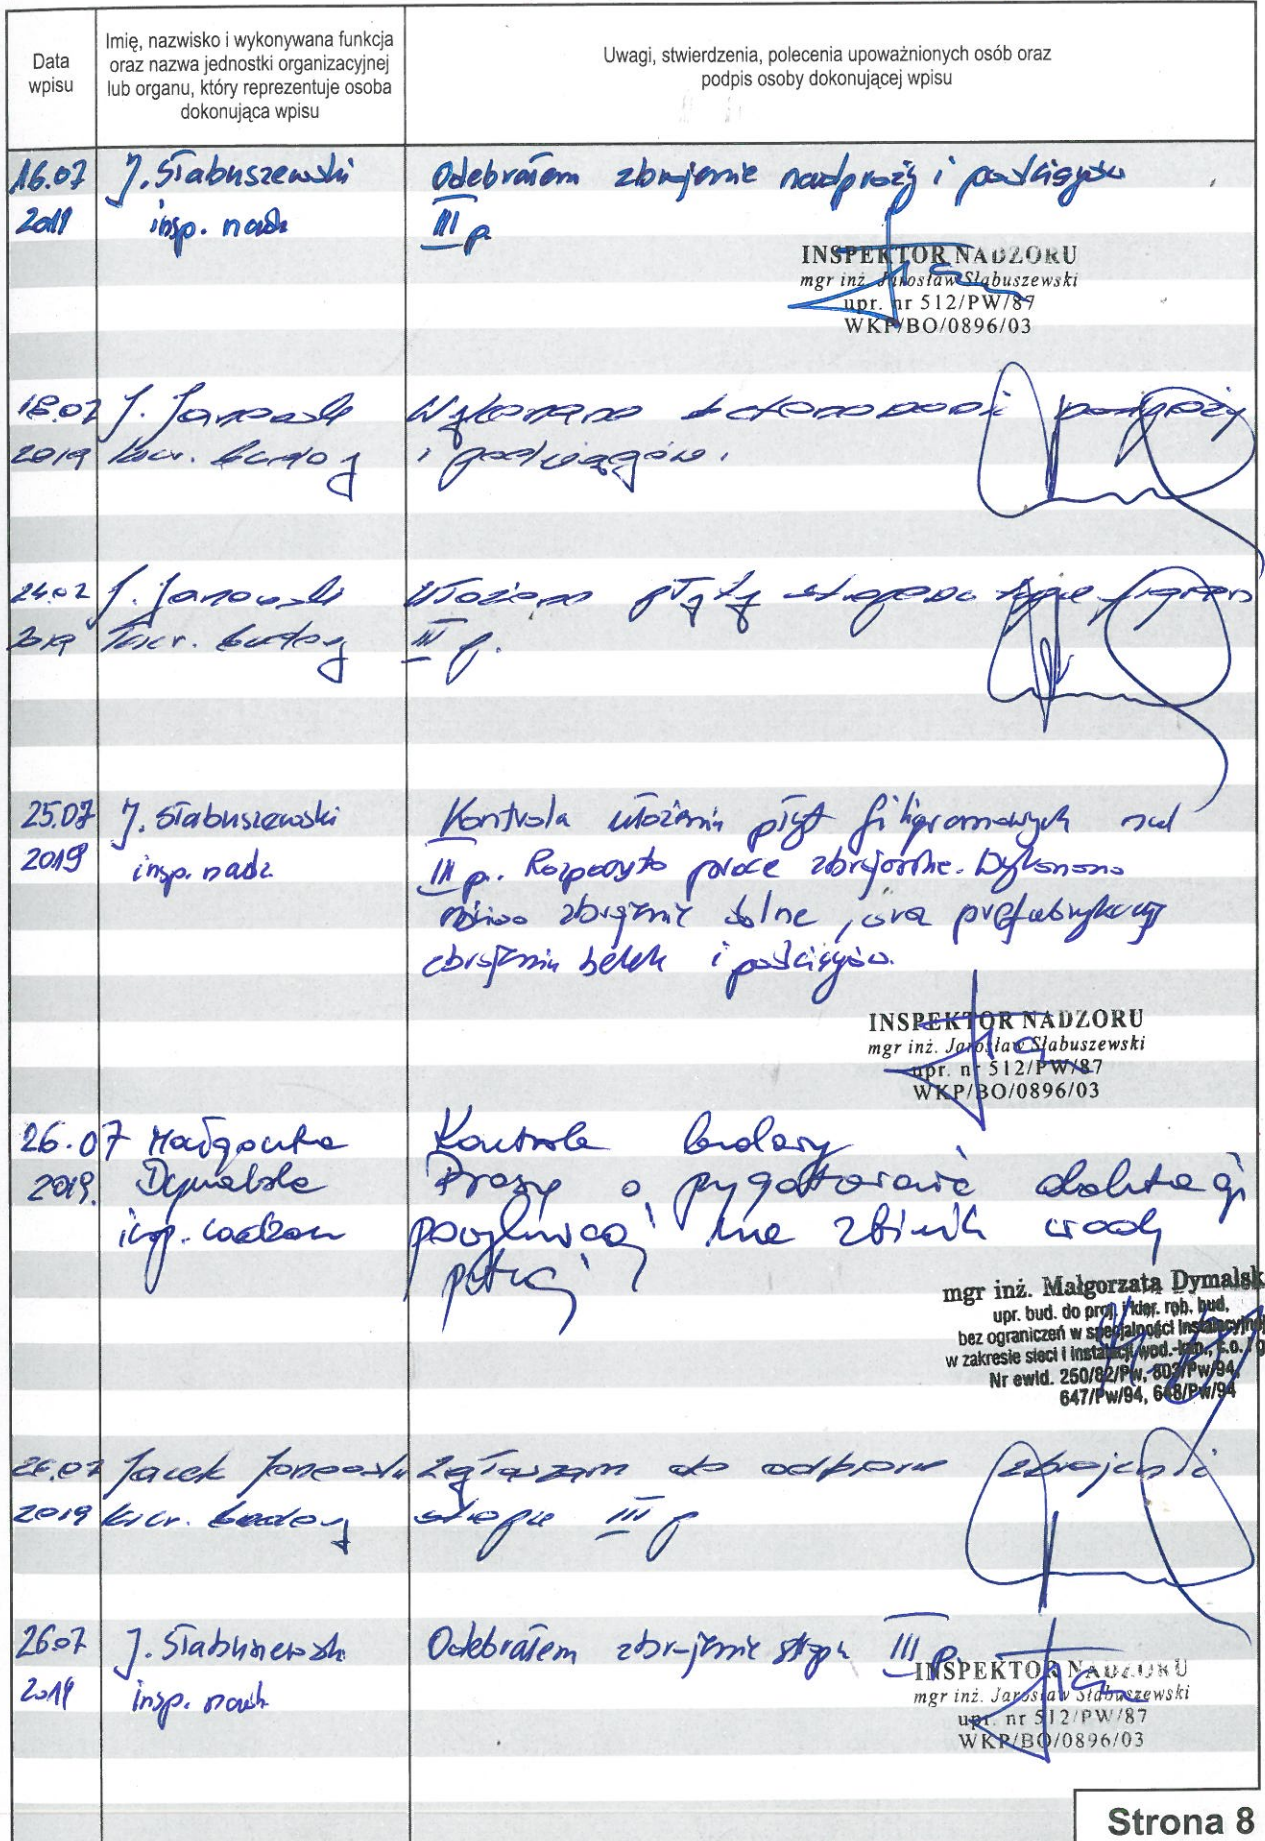 Data wpisu
Imię, nazwisko i wykonywana funkcja oraz nazwa jednostki organizacyjnej lub organu, który reprezentuje osoba dokonująca wpisu
Uwagi, stwierdzenia, polecenia upoważnionych osób oraz podpis osoby dokonującej wpisu
16.07 J. Słabuszewski Odebrałem zbrojenie nadproży i podciągów
2019 insp. nadz III p.
INSPEKTOR NADZORU
mgr inż. Jarosław Słabuszewski
upr. nr 512/PW/87
WKP/BO/0896/03
18.07 J. Janowski Wykonano betonowanie
2019 kier. budowy i podciągów.
24.07 J. Janowski Ułożono płyty stropowe typu
2019 kier. budowy III p.
25.07 J. Słabuszewski Kontrola ułożenia płyt filigranowych nad
2019 insp. nadz III p. Rozpoczęto prace zbrojarskie. Wykonano
zbrojenie dolne, oraz prefabrykację
zbrojenia belek i podciągów.
INSPEKTOR NADZORU
mgr inż. Jarosław Słabuszewski
upr. nr 512/PW/87
WKP/BO/0896/03
26.07 Małgorzata Kontrola budowy
2019. Dymalska Proszę o przygotowanie
insp. nadzoru na zbiornik wody
mgr inż. Małgorzata Dymalsk
upr. bud. do proj. i kier. rob. bud.
bez ograniczeń w specjalności instalacyjnej
w zakresie sieci i instalacji wod.-kan., c.o. i g
Nr ewid. 250/82/Pw, 803/Pw/94,
647/Pw/94, 648/Pw/94
26.07 Jacek Janowski Zgłaszam do odbioru zbrojenie
2019 kier. budowy stropu III p
26.07 J. Słabuszewski Odebrałem zbrojenie stropu III p.
2019 insp. nadz
INSPEKTOR NADZORU
mgr inż. Jarosław Słabuszewski
upr. nr 512/PW/87
WKP/BO/0896/03
Strona 8